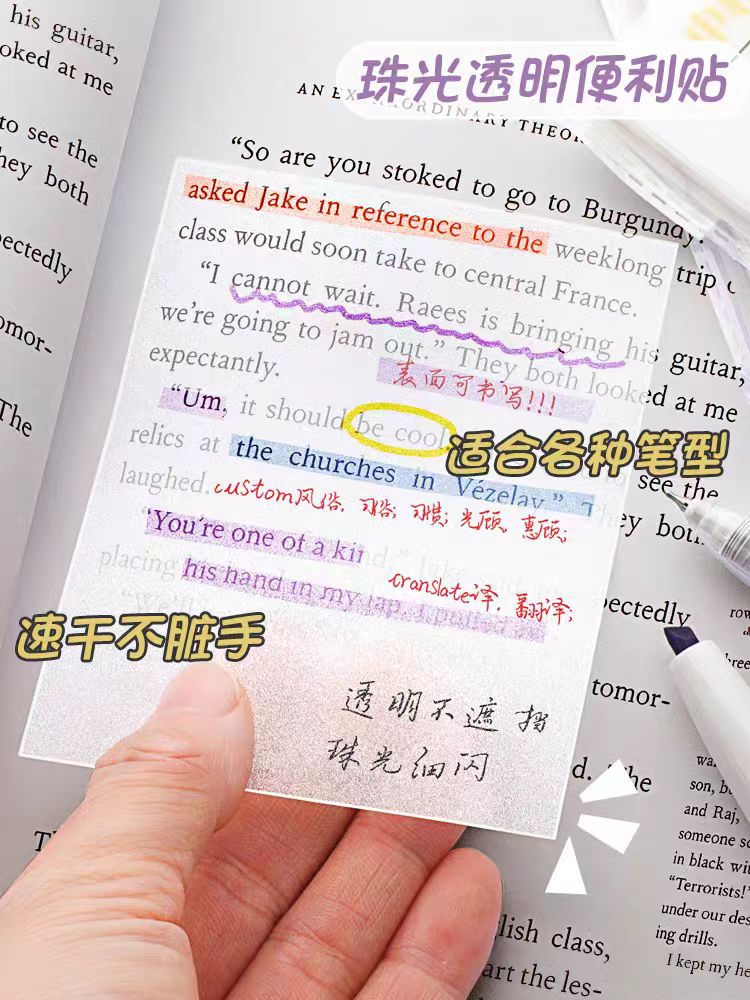 珠光透明便利贴
his guitar,
oked at me
to see the
hey both
pectedly
omor-
The
AN EXTRAORDINARY THEOR
“So are you stoked to go to Burgundy?”
asked Jake in reference to the weeklong trip
class would soon take to central France.
“I cannot wait. Raees is bringing his guitar,
we’re going to jam out.” They both looked at me
expectantly.
表面可书写!!!
“Um, it should be cool
适合各种笔型
to see the
relics at the churches in Vézelay,” T
ey both
laughed.
custom风俗，习俗；习惯；光顾，惠顾；
“You’re one of a kin
placing
his hand in my lap. I pulled
translate译，翻译；
pectedly
速干不脏手
tomor-
透明不遮挡
珠光细闪
d. The
lish class,
art the les-
row
wa
son, b
and Raj,
someone s
in black wit
“Terrorists!”
under our des
ing drills.
I kept my he